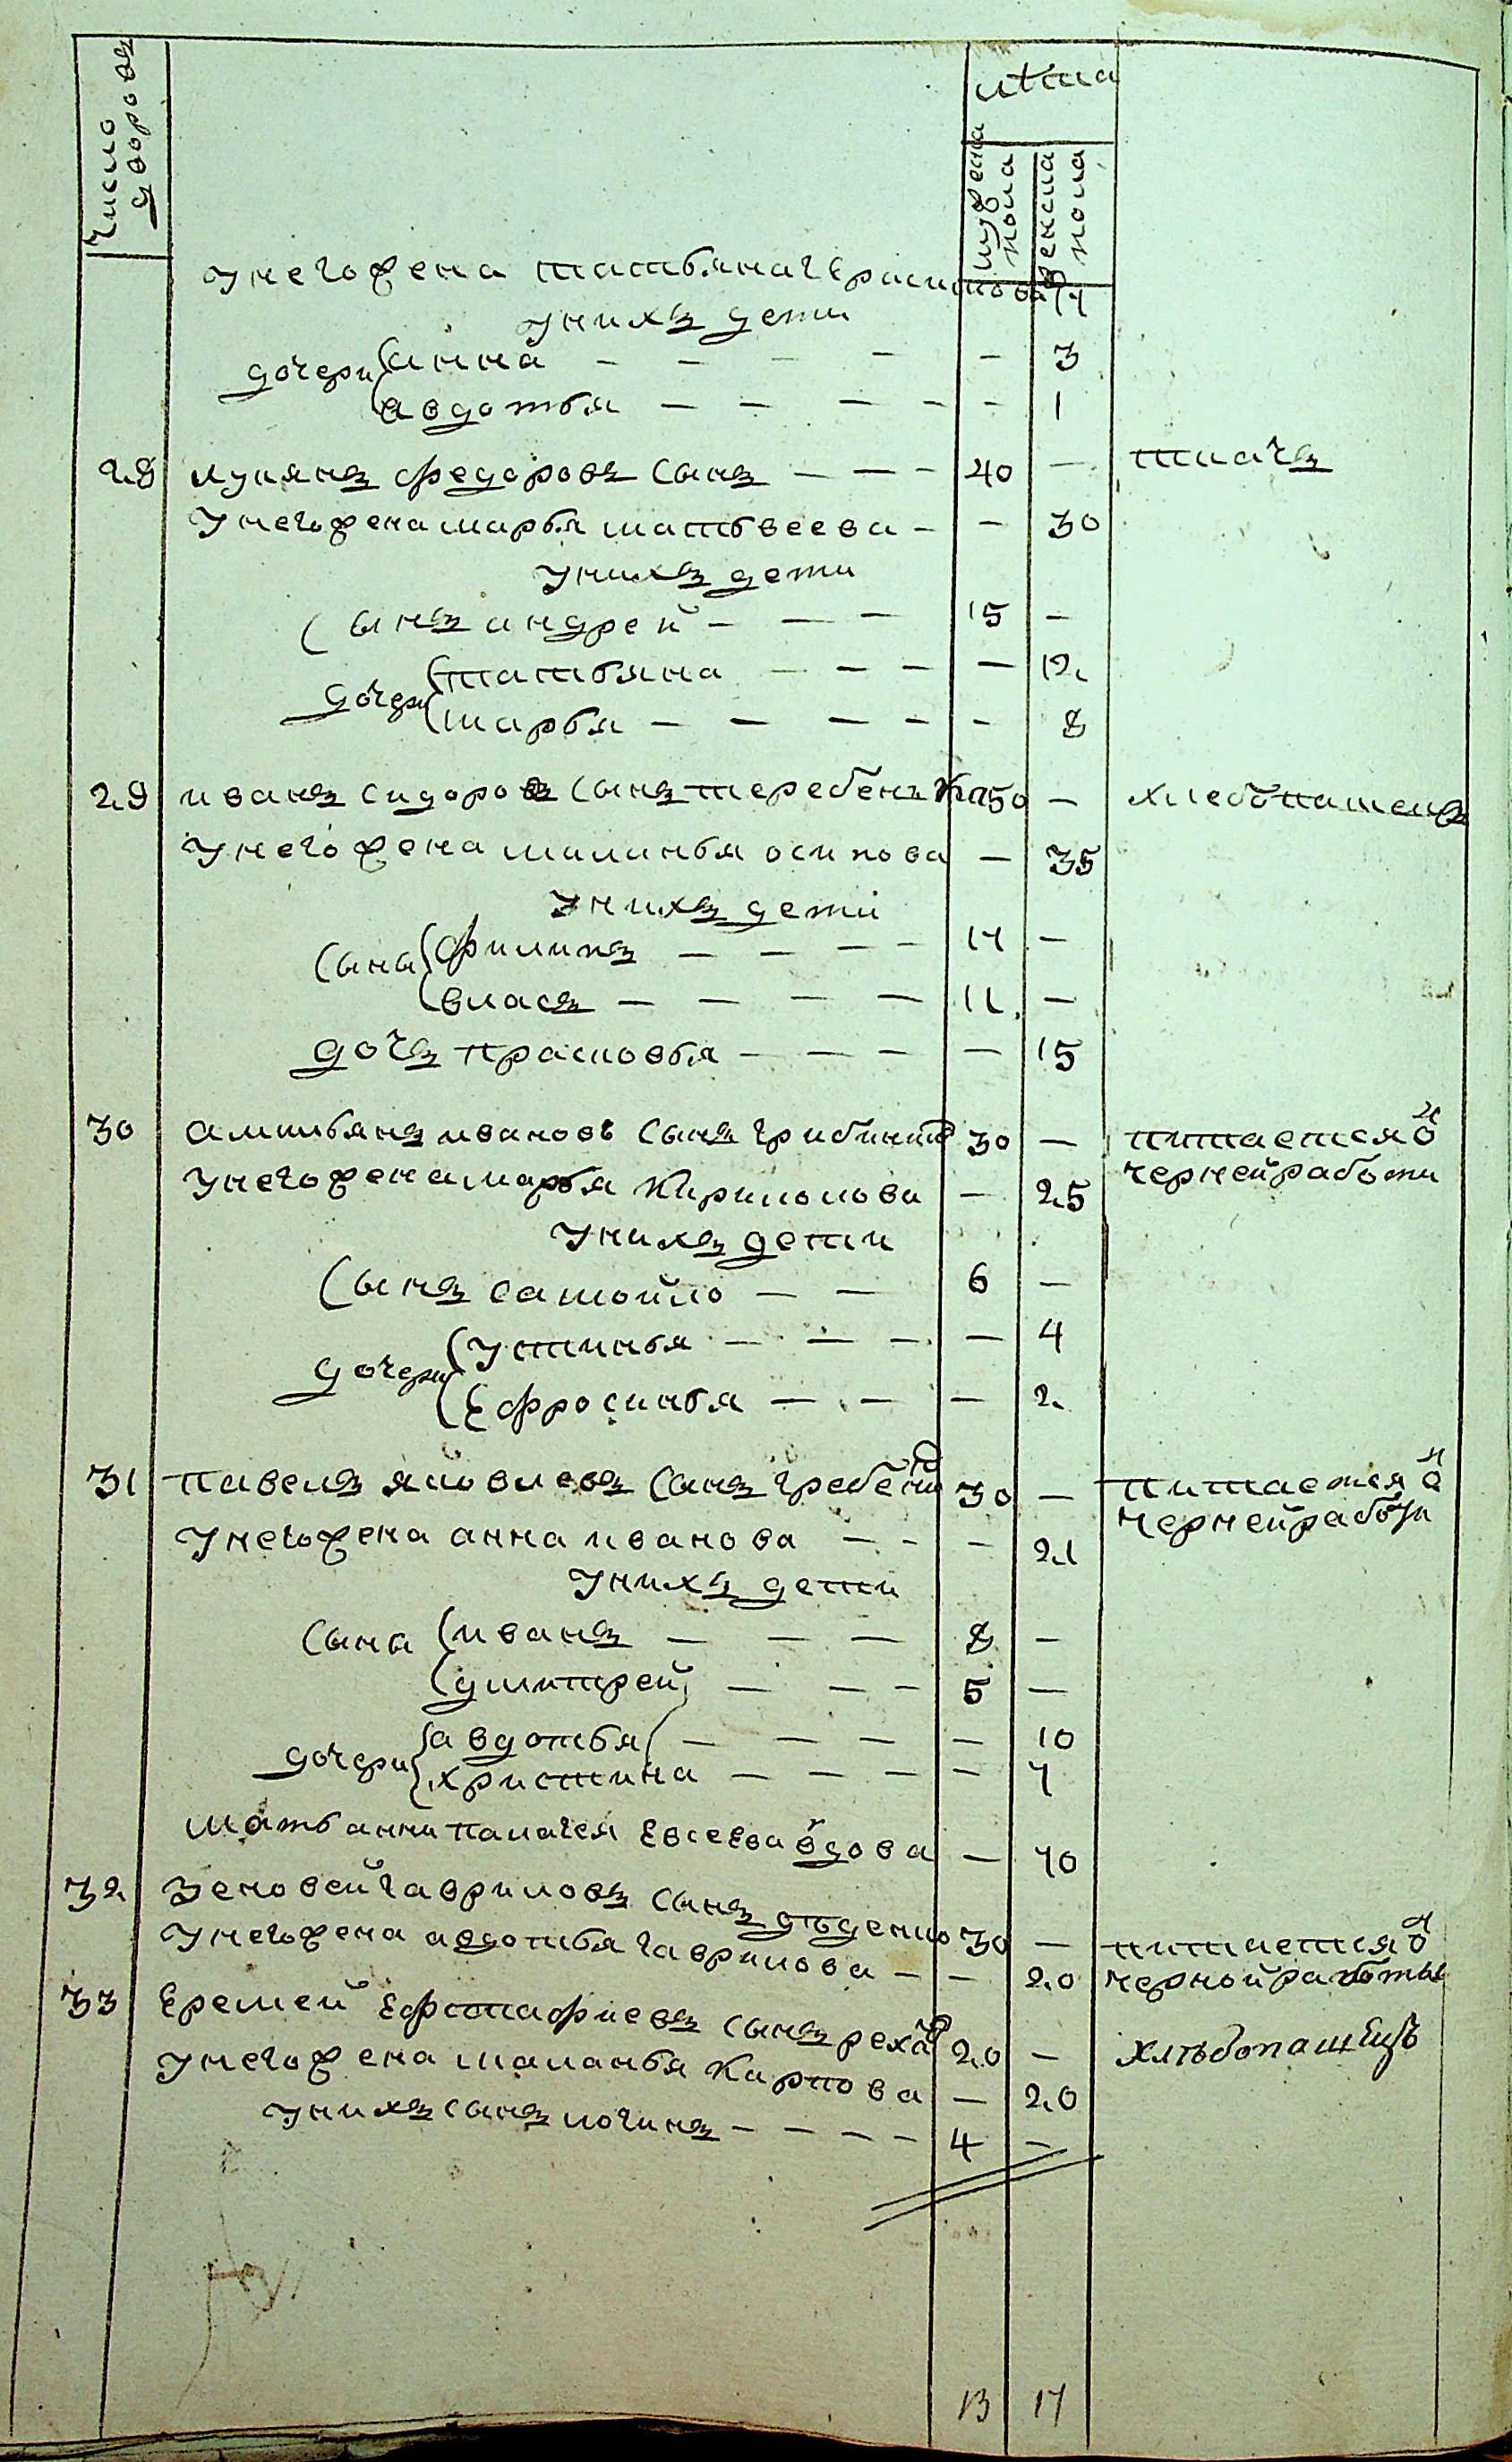 Число дворовъ
лѣта
мужеска пола
женска пола
у него жена татьяна герасимова 24
у нихъ дети
дочери анна — — — — — 3
авдотья — — — — — 1
28 лукянъ федоровъ сынъ — — — 40 — ткачъ
у него жена марья матьвеева — — 30
у нихъ дети
сынъ андрей — — — 15 —
дочери татьяна — — — — 12
марья — — — — — 8
29 иванъ сидоровъ сынъ теребенька 50 — хлебопашецъ
у него жена маланья осипова — 35
у нихъ дети
сыны филипъ — — — — 14 —
власъ — — — — 11 —
дочъ прасковья — — — — 15
30 емельянъ ивановъ сынъ 30 — питается ѿ
у него жена марья Кирилова — 25 черней работи
у нихъ дети
сынъ самойло — — 6 —
дочери устинья — — — — 4
Ефросинья — — — 2
31 павелъ яковлевъ сынъ 30 — питается ѿ
у него жена анна иванова — — — 21 черней работи
у нихъ дети
сыны иванъ — — — 8 —
дмитрей — — — 5 —
дочери авдотья — — — — 10
христина — — — — 7
мать анни палагея Евсеева вдова — 70
32 Зеновей гавриловъ сынъ 30 — питается ѿ
у него жена авдотья гаврилова — — 20 черной работы
33 Еремей Ефстафиевъ сынъ 20 — хлѣбопашецъ
у него жена маланья Карпова — 20
у нихъ сынъ логинъ — — — — 4 —
13 17